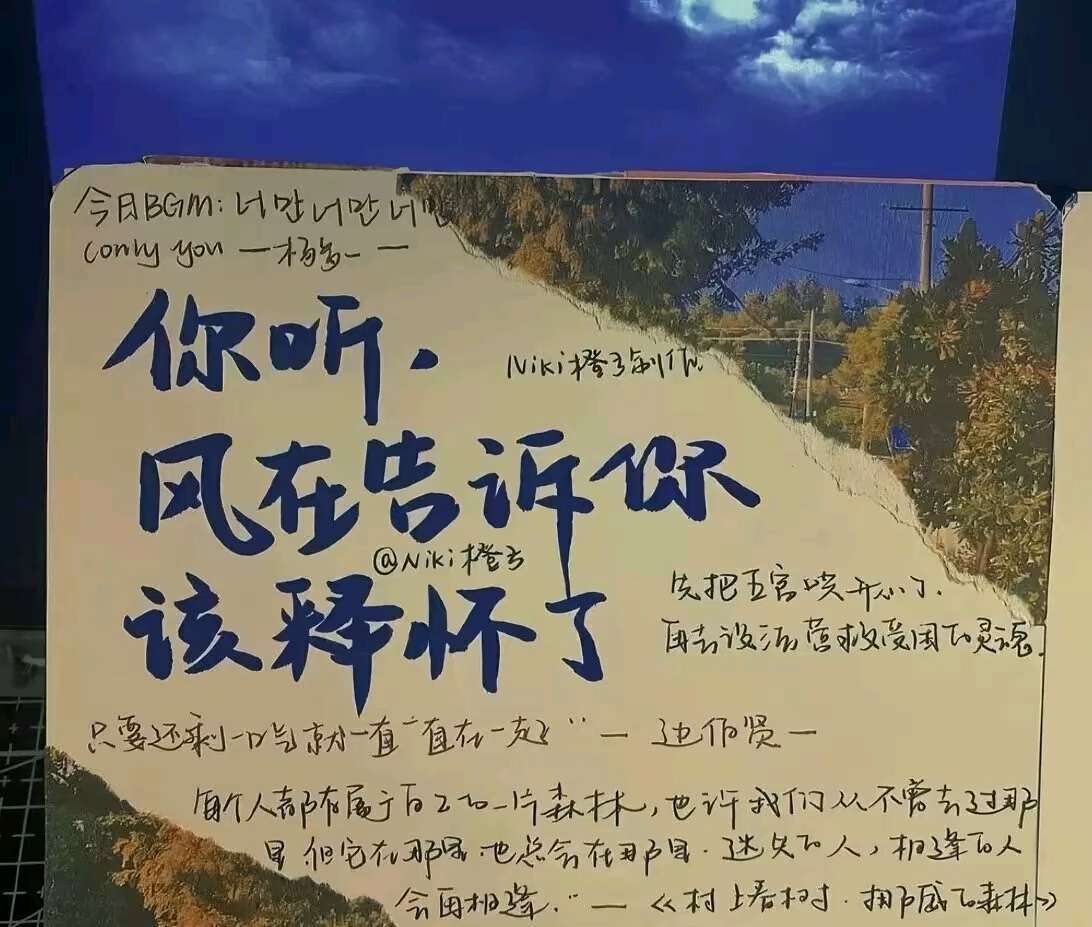 今日BGM: 너만너만너만
(only you — 杨 —
你听，
Niki橙子制作
风在告诉你
@Niki橙子
该释怀了
先把五官哄开心了，
再去设法营救受困的灵魂.
只要还剩一口气就一直一直在一起” — 边伯贤 —
每个人都有属于自己的一片森林，也许我们从不曾去过那
里 但它在那里.也总会在那里.迷失的人，相逢的人
会再相逢.” — 《村上春树·挪威的森林》